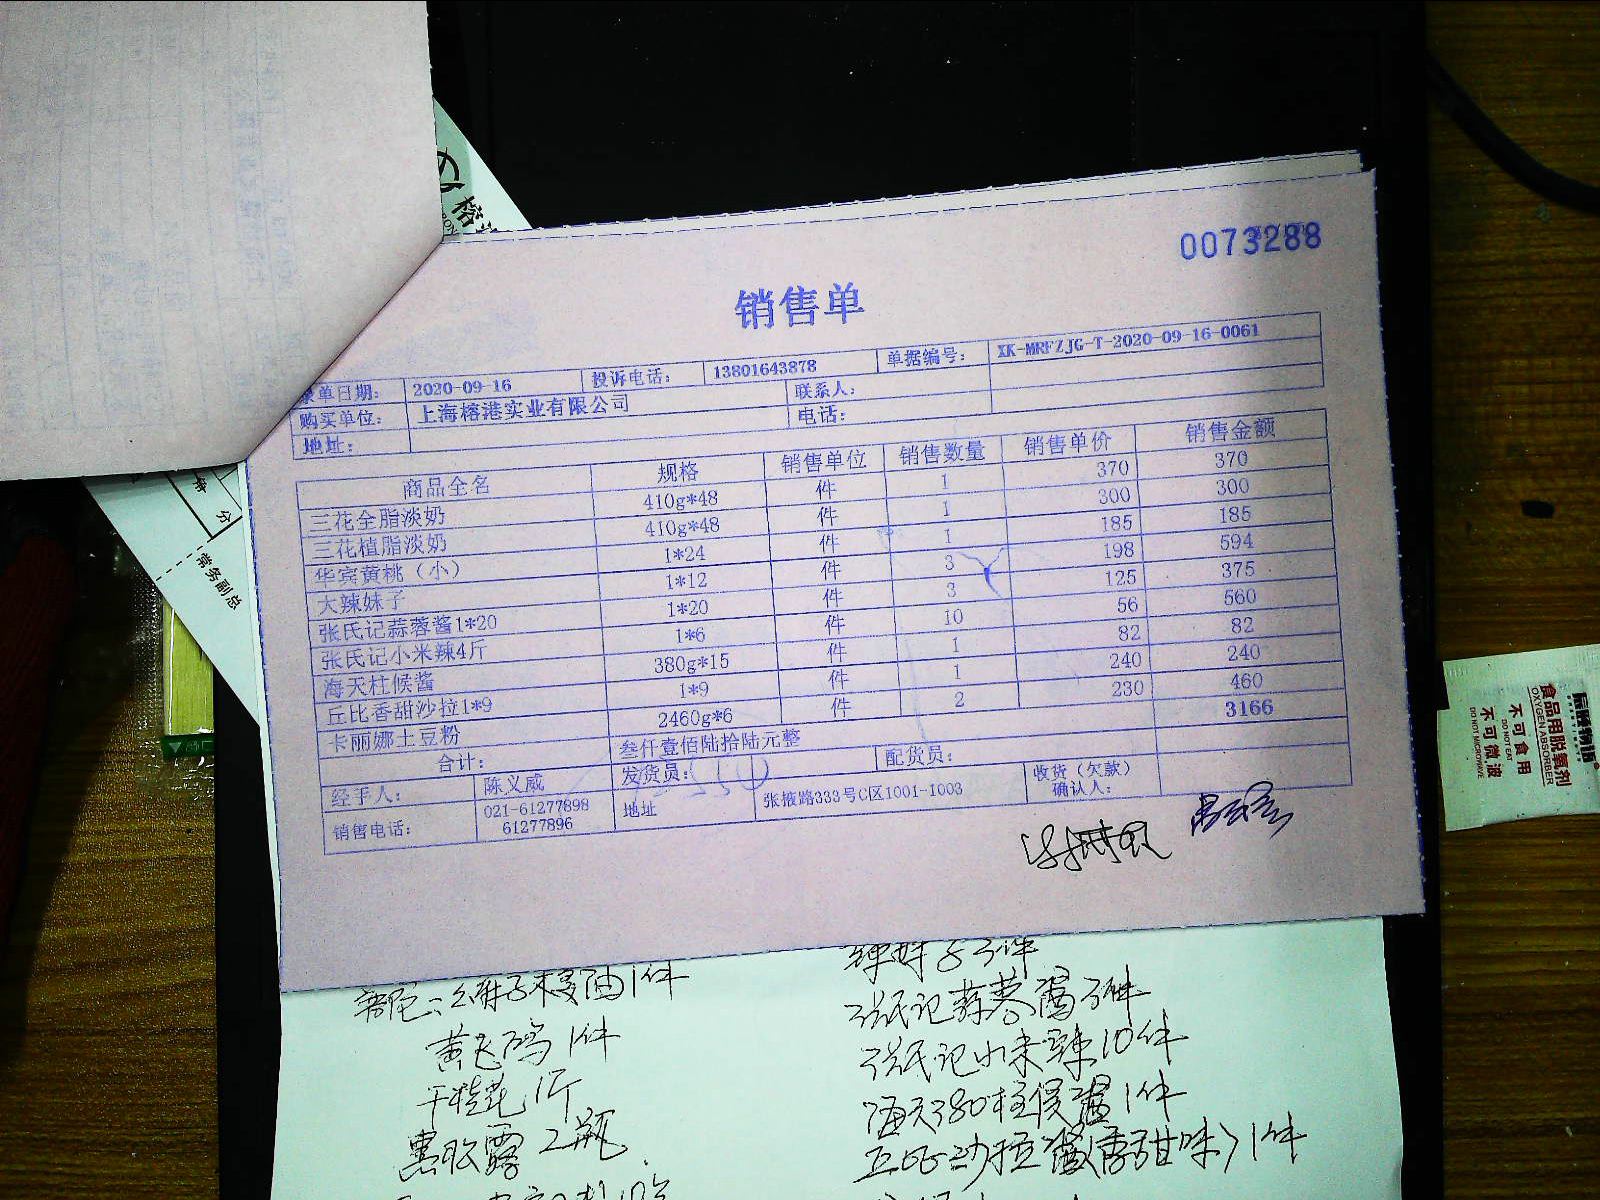 0073288
销售单
录单日期: 2020-09-16 投诉电话: 13801643878 单据编号: XK-MRFZJG-T-2020-09-16-0061
购买单位: 上海榕港实业有限公司 联系人:
地址: 电话:
商品全名 规格 销售单位 销售数量 销售单价 销售金额
三花全脂淡奶 410g*48 件 1 370 370
三花植脂淡奶 410g*48 件 1 300 300
华宾黄桃（小） 1*24 件 1 185 185
大辣妹子 1*12 件 3 198 594
张氏记蒜蓉酱1*20 1*20 件 3 125 375
张氏记小米辣4斤 1*6 件 10 56 560
海天柱候酱 380g*15 件 1 82 82
丘比香甜沙拉1*9 1*9 件 1 240 240
卡丽娜土豆粉 2460g*6 件 2 230 460
合计: 叁仟壹佰陆拾陆元整 3166
经手人: 陈义威 发货员: 配货员: 收货（欠款）确认人:
销售电话: 021-61277898 61277896 地址 张掖路333号C区1001-1003
辣妹子3件
张氏记蒜蓉酱3件
黄飞鸿1件
张氏记小米辣10件
干桂花1斤
海天380柱侯酱1件
2瓶
丘比沙拉酱(香甜味)1件
榕港
常务副总
食品用脱氧剂
OXYGEN ABSORBER
不可食用
DO NOT EAT
不可微波
DO NOT MICROWAVE